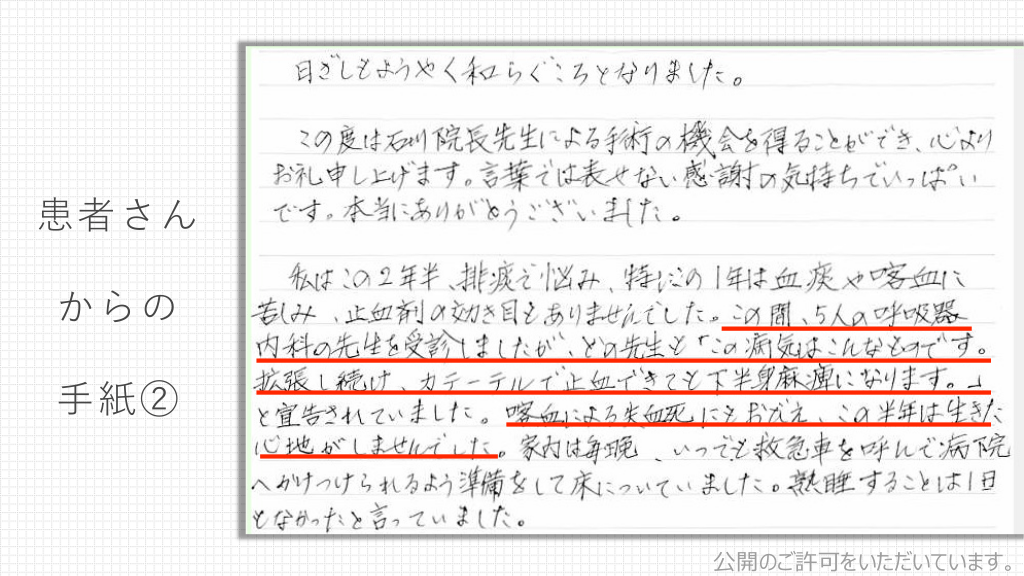 患者さん
からの
手紙②
日ざしもようやく和らぐころとなりました。
この度は石川院長先生による手術の機会を得ることができ、心より
お礼申し上げます。言葉では表せない感謝の気持ちでいっぱい
です。本当にありがとうございました。
私はこの2年半、排痰で悩み、特にこの1年は血痰や喀血に
苦しみ、止血剤の効き目もありませんでした。この間、5人の呼吸器
内科の先生を受診しましたが、どの先生も「この病気はこんなものです。
拡張し続け、カテーテルで止血できても下半身麻痺になります。」
と宣告されていました。喀血による失血死にもおびえ、この半年は生きた
心地がしませんでした。家内は毎晩、いつでも救急車を呼んで病院
へかけつけられるよう準備をして床についていました。熟睡することは1日
もなかったと言っていました。
公開のご許可をいただいています。